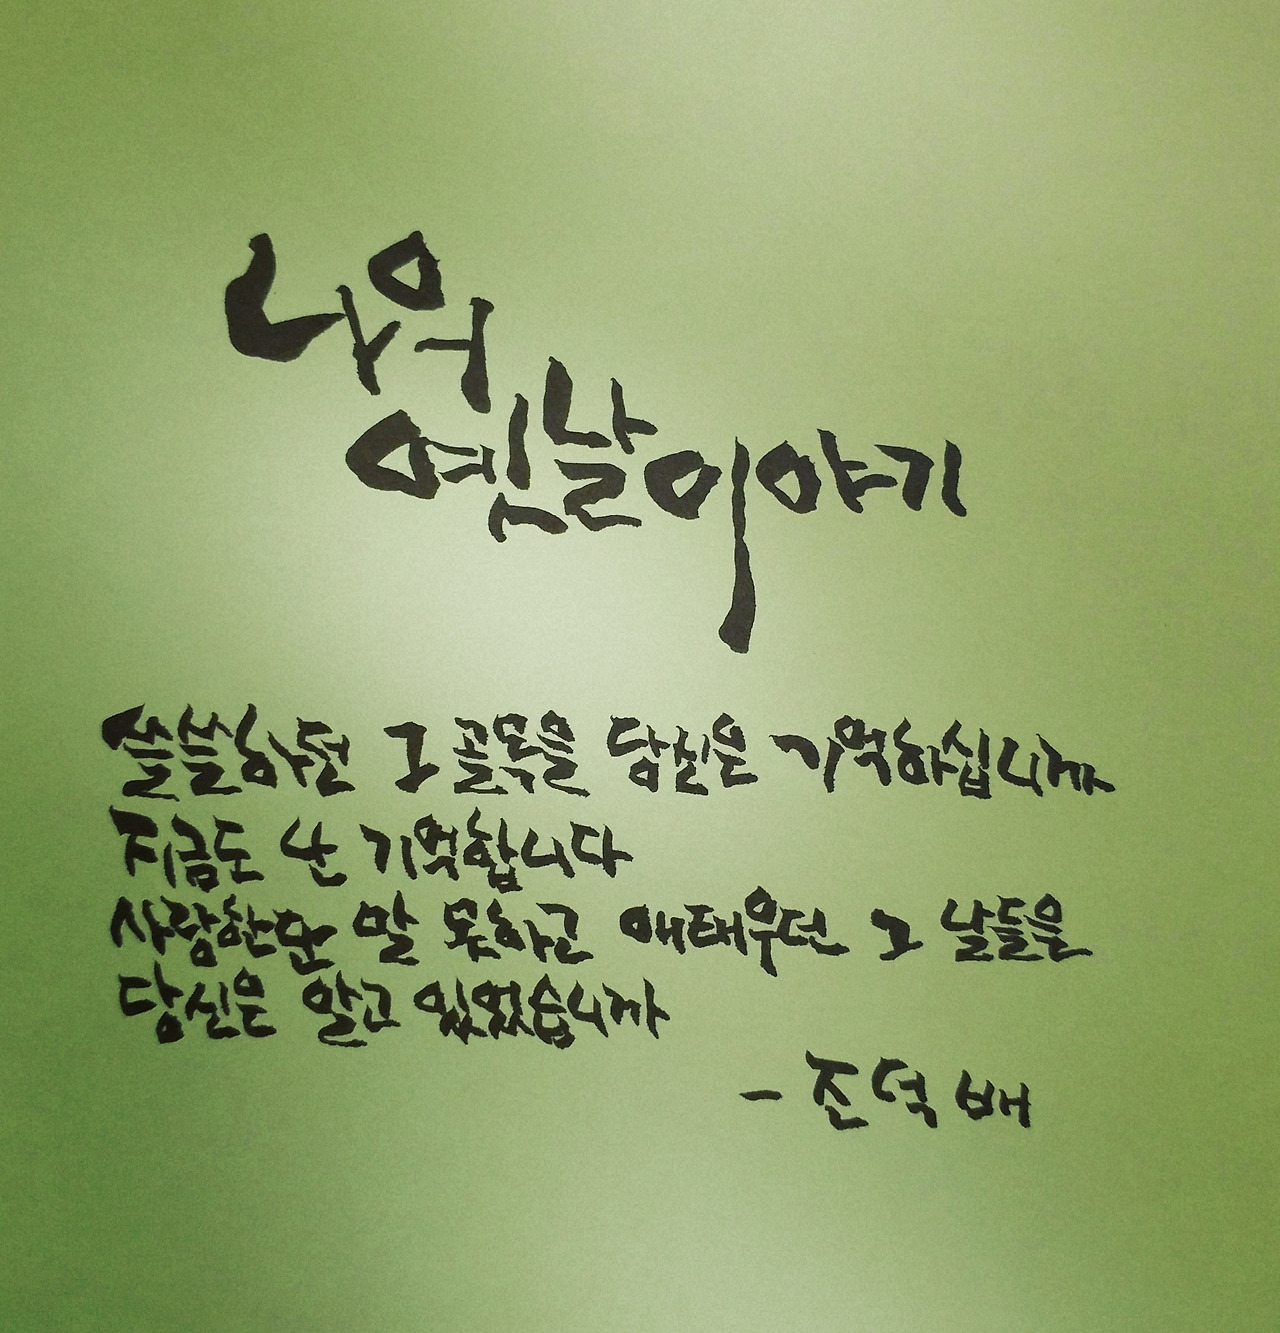 나의
옛날이야기
쓸쓸하던 그 골목을 당신은 기억하십니까
지금도 난 기억합니다
사랑한단 말 못하고 애태우던 그 날들을
당신은 알고 있었습니까
- 조덕배